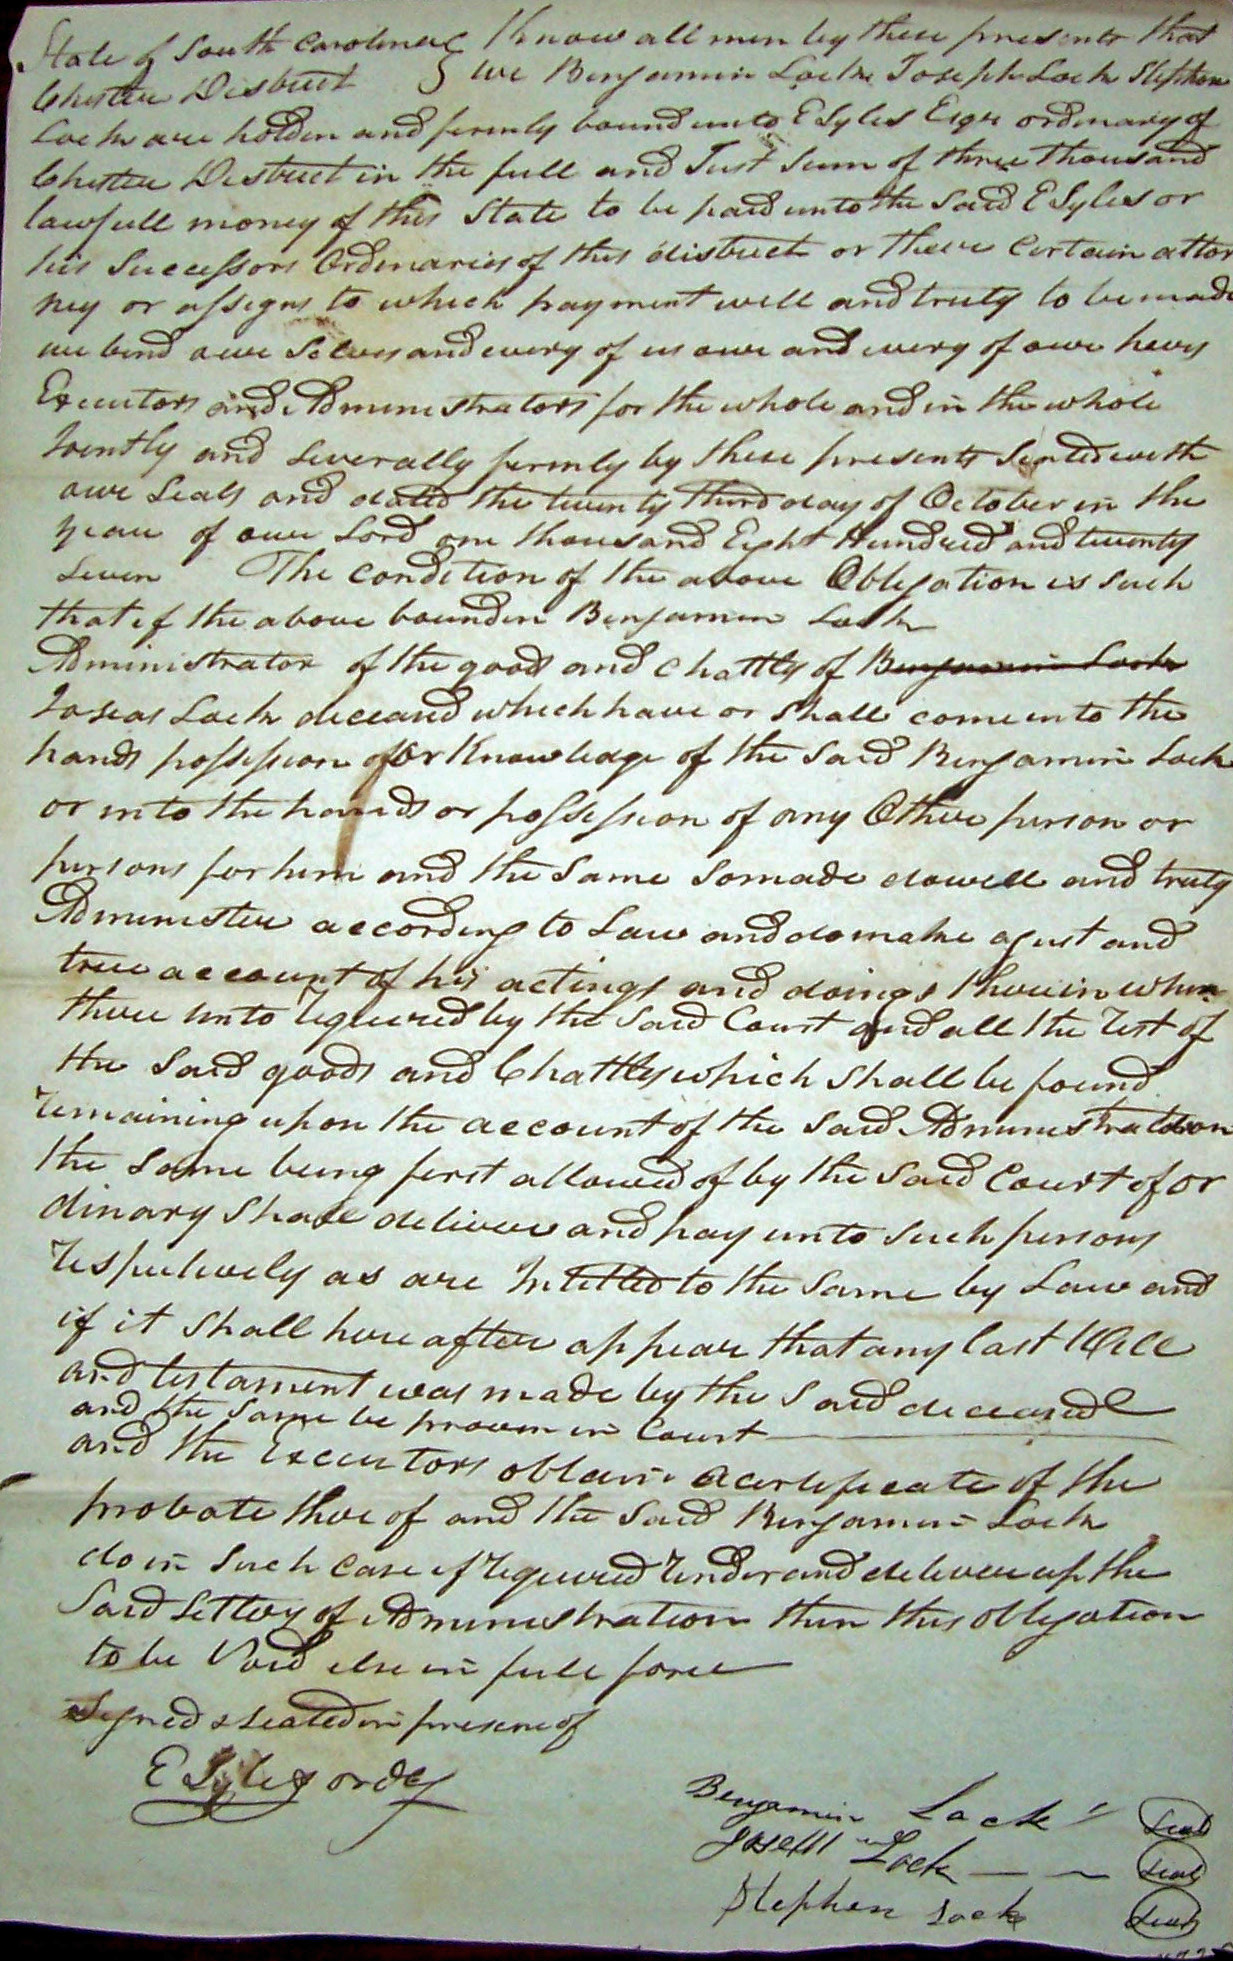 State of South Carolina } Know all men by these presents that
Chester District } we Benjamin Lock Joseph Lock Stephen
Lock are holden and firmly bound unto E Lyles Esqr ordinary of
Chester District in the full and Just Sum of three thousand
lawfull money of this State to be paid unto the Said E Lyles or
his Successors Ordinaries of this district or there Certain attor
ney or assigns to which payment well and truly to be made
we bind owr Selves and every of us owr and every of owr heirs
Executors and Administrators for the whole and in the whole
Jointly and Severally firmly by these presents Sealed with
owr Seals and dated the twenty third day of October in the
year of owr Lord one thousand Eight Hundred and twenty
Seven The Condition of the above Obligation is Such
that if the above bounden Benjamin Lock
Administrator of the goods and Chattly of Benjamin Lock
Lock deceasd which have or Shall come into the
hands possession or Knowledge of the Said Benjamin Lock
or into the hands or possession of any Other person or
persons for him and the Same So made do well and truly
Administer according to Law and do make a just and
true account of his actings and doings therein when
there unto required by the Said Court and all the rest of
the Said goods and Chattly which Shall be found
remaining upon the account of the Said Administration
the Same being first allowed of by the Said Court of or
dinary Shall deliver and pay unto Such persons
respectively as are Intitled to the Same by Law and
if it Shall here after appear that any last Will
and testament was made by the Said deceased
and the Same be proven in Court
and the Executors obtain a certificate of the
probate there of and the Said Benjamin Lock
do in Such Case if required render and deliver up the
Said Letters of Administration then this obligation
to be Void else in full force
Signed & Sealed in presence of
E Lyles ordy
Benjamin Lock Seal
Joseph Lock Seal
Stephen Lock Seal